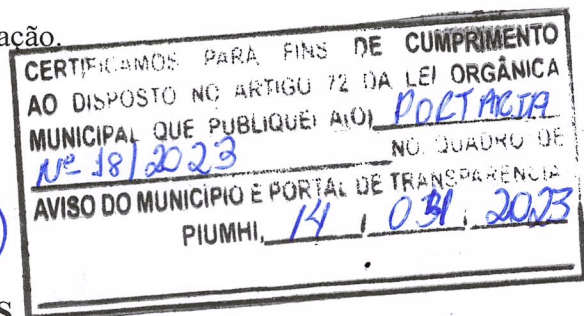 ação.
CERTIFICAMOS PARA FINS DE CUMPRIMENTO
AO DISPOSTO NO ARTIGO 72 DA LEI ORGÂNICA
MUNICIPAL QUE PUBLIQUEI A(O) PORTARIA
Nº 18/2023 NO QUADRO DE
AVISO DO MUNICÍPIO E PORTAL DE TRANSPARENCIA
PIUMHI, 14 / / 2023
S